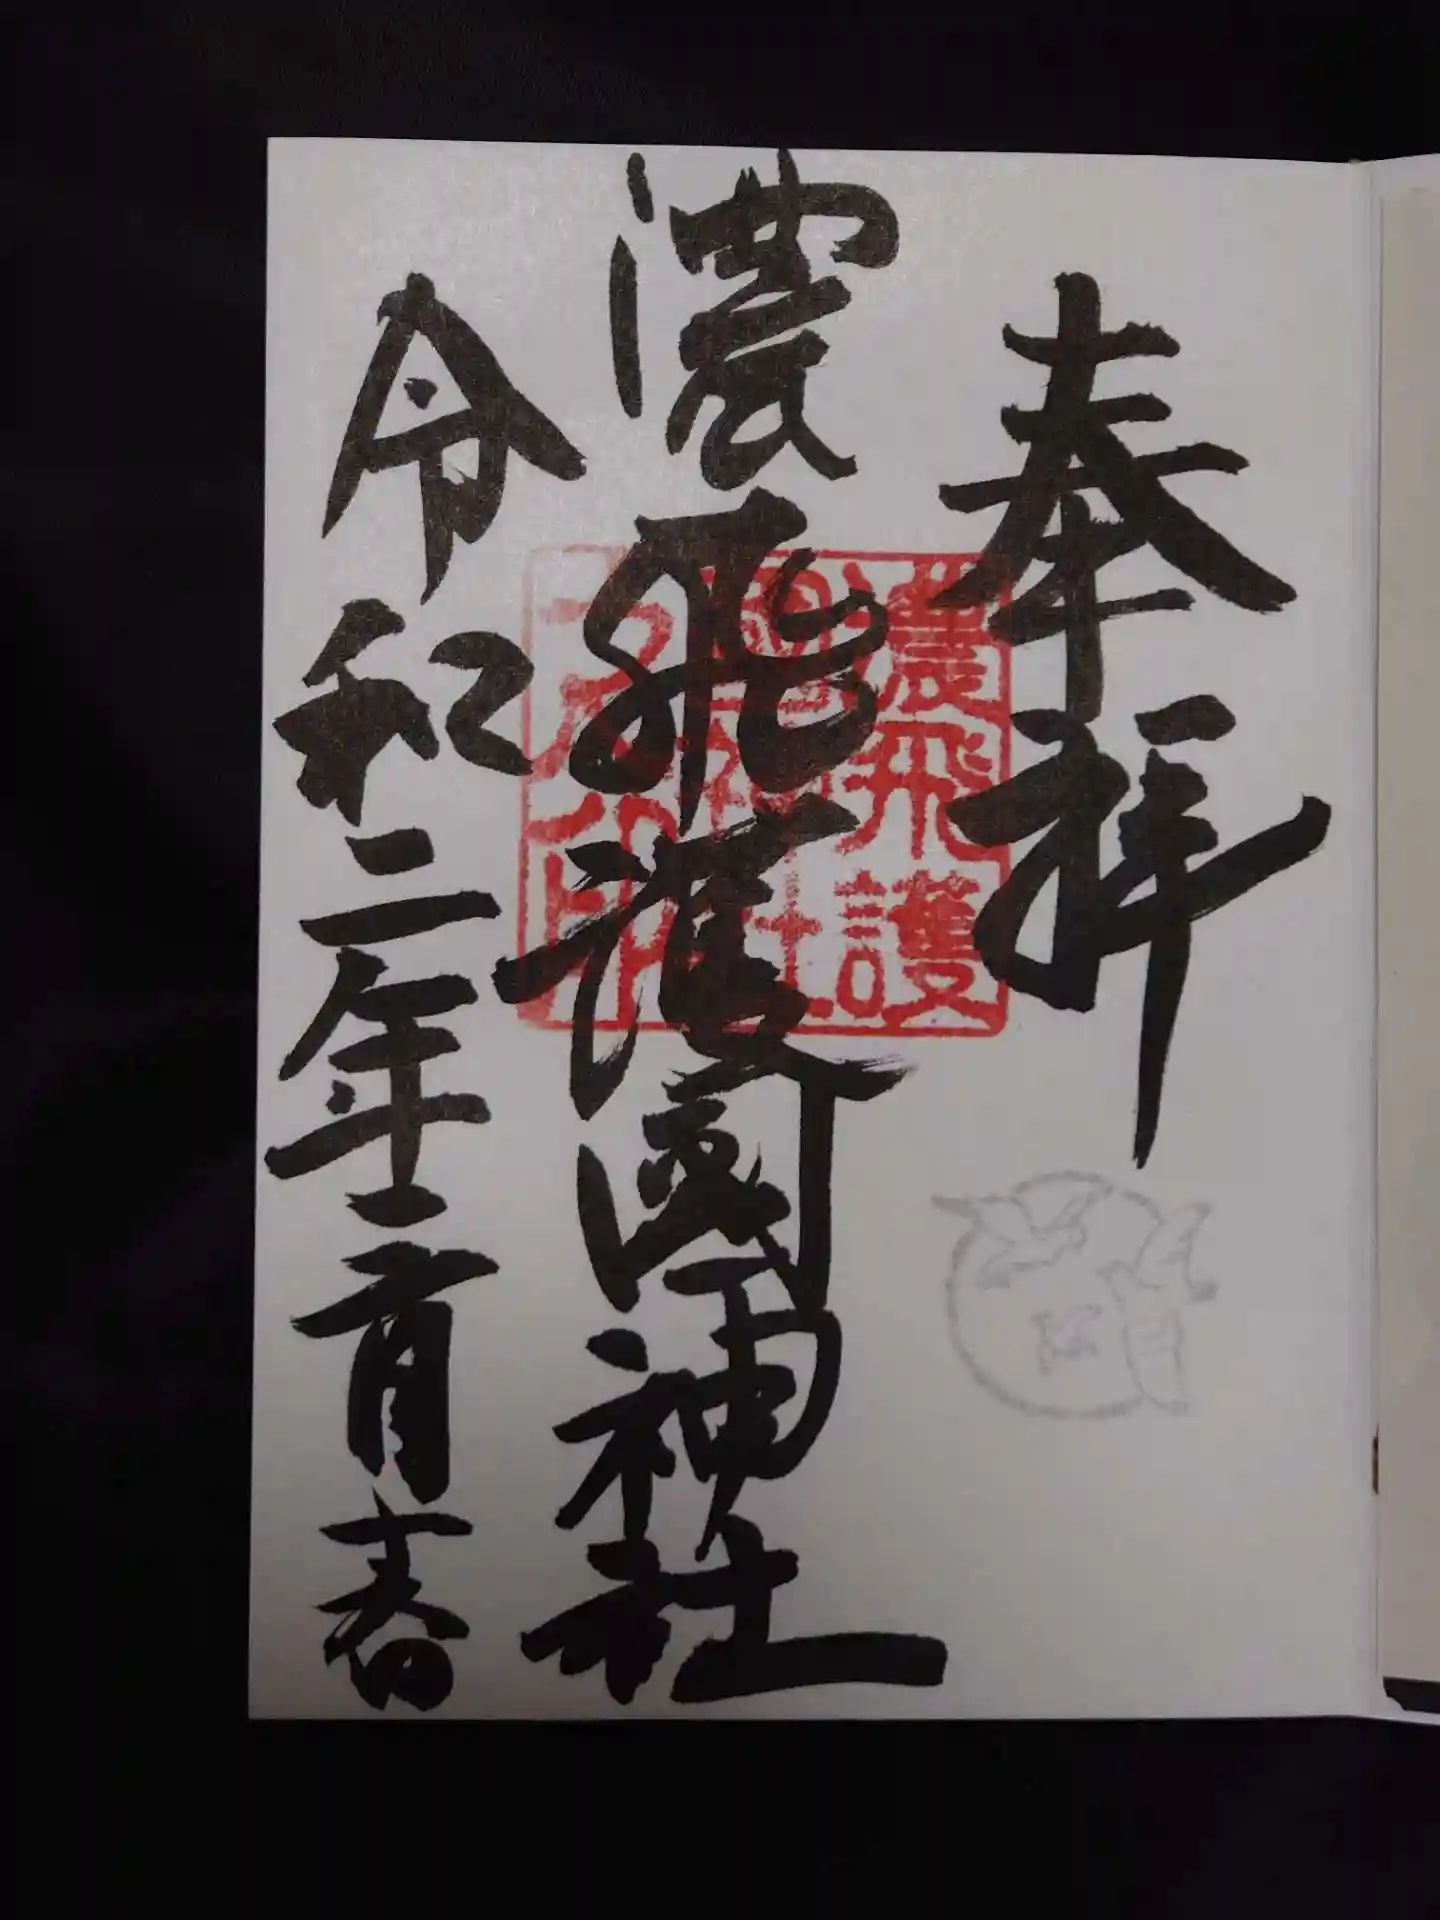 奉拝
濃飛護國神社
令和二年二月春
濃飛護
國神社
之公印